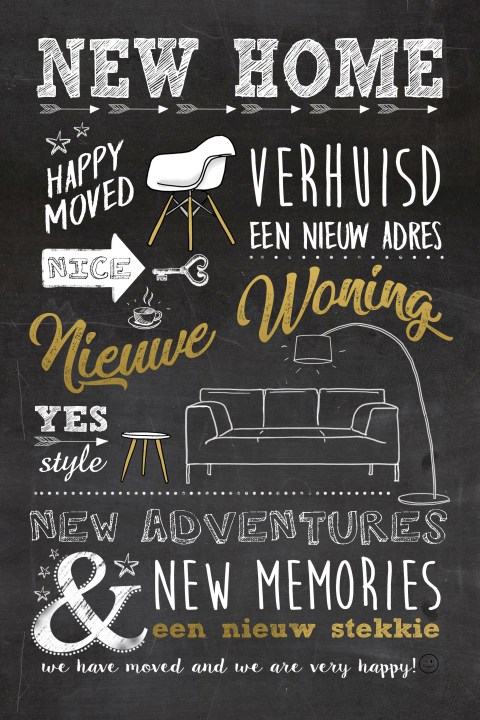 NEW HOME
HAPPY
MOVED
VERHUISD
EEN NIEUW ADRES
NICE
Nieuwe Woning
YES
style
NEW ADVENTURES
& NEW MEMORIES
een nieuw stekkie
we have moved and we are very happy!